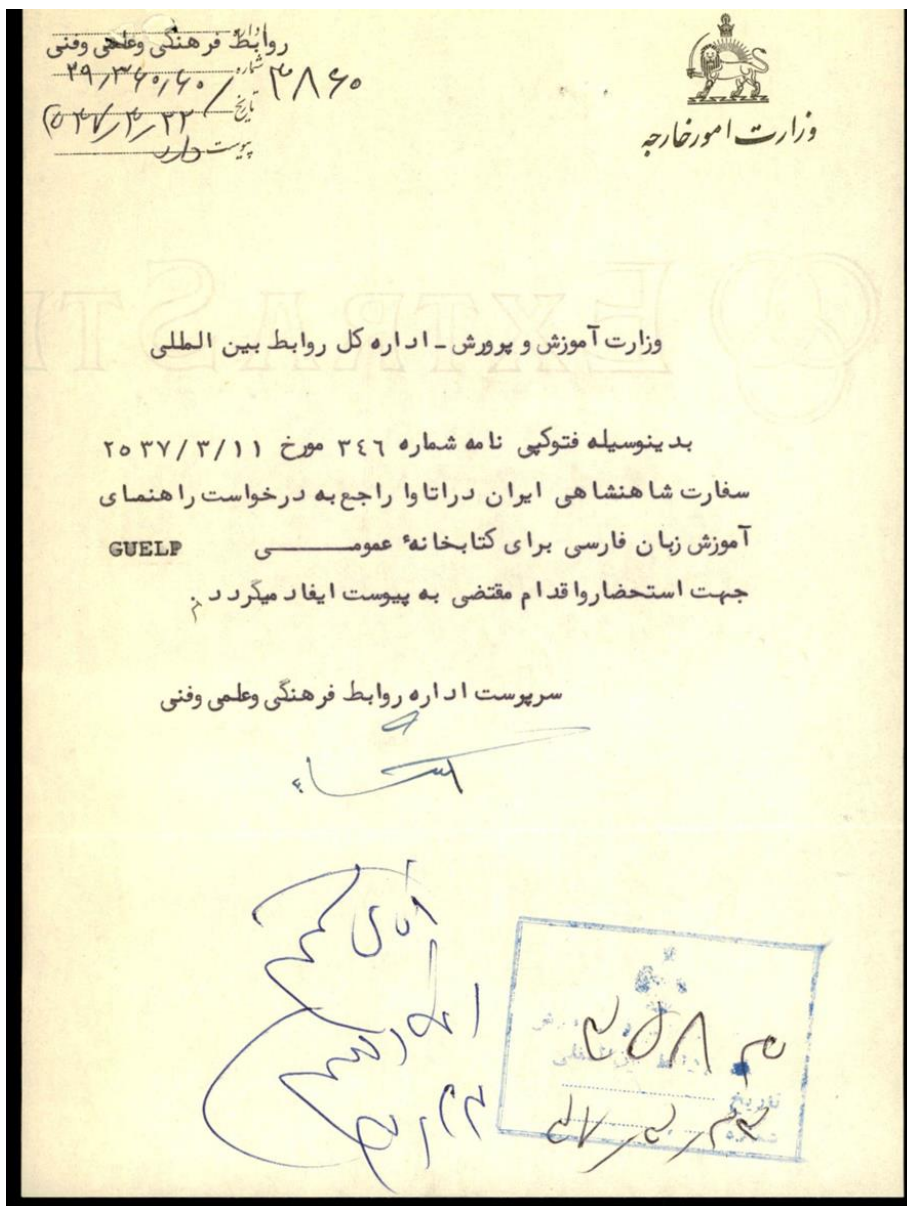 وزارت امورخارجه
اداره روابط فرهنگی وعلمی وفنی
شماره ۲۹/۳۶۰/۶۰/ ۳۸۶۰
تاریخ ۲۵۳۷/۳/۲۲
پیوست دارد
EXTRA ST
وزارت آموزش و پرورش ـ اداره کل روابط بین المللی
بدینوسیله فتوکپی نامه شماره ۳٤٦ مورخ ۲۵۳۷/۳/۱۱
سفارت شاهنشاهی ایران دراتاوا راجع به درخواست راهنمای
آموزش زبان فارسی برای کتابخانهٔ عمومــــی GUELP
جهت استحضارواقدام مقتضی به پیوست ایفاد میگردد.
سرپرست اداره روابط فرهنگی وعلمی وفنی
تاریخ